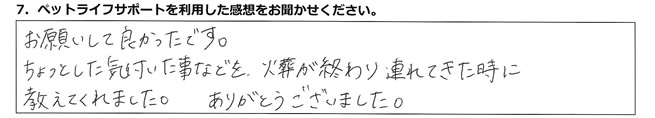 7．ペットライフサポートを利用した感想をお聞かせください。
お願いして良かったです。
ちょっとした気付いた事などを、火葬が終わり連れてきた時に
教えてくれました。　ありがとうございました。